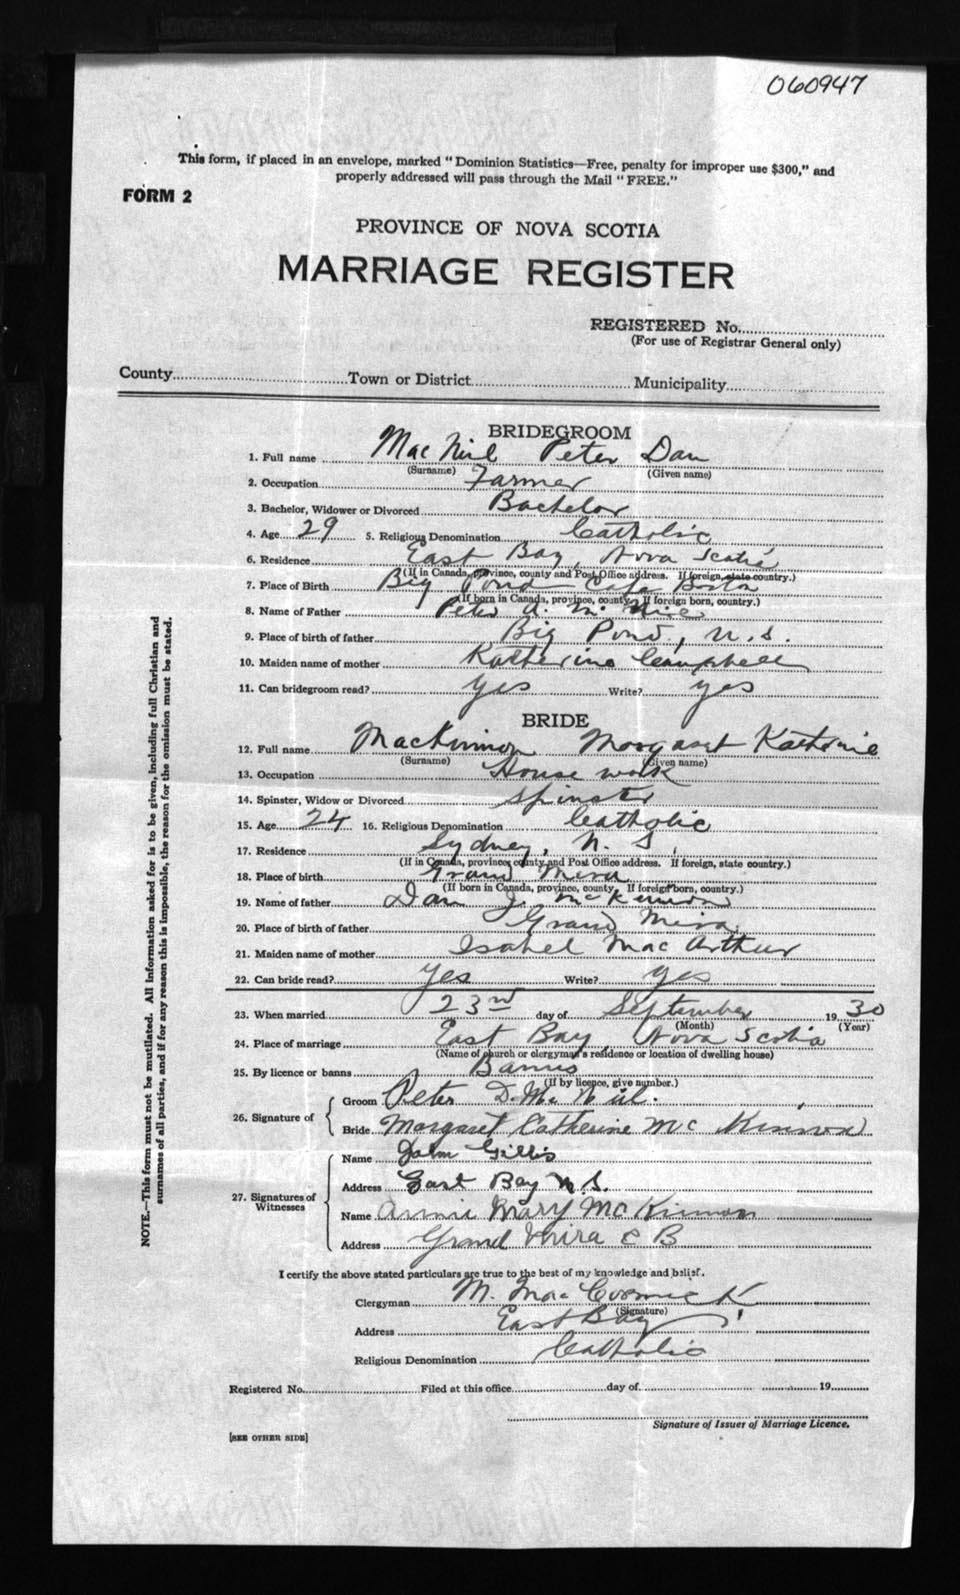 060947
This form, if placed in an envelope, marked "Dominion Statistics—Free, penalty for improper use $300," and
properly addressed will pass through the Mail "FREE."
FORM 2
PROVINCE OF NOVA SCOTIA
MARRIAGE REGISTER
REGISTERED No.
(For use of Registrar General only)
County Town or District Municipality
BRIDEGROOM
1. Full name Mac Neil Peter Dan
(Surname) (Given name)
2. Occupation Farmer
3. Bachelor, Widower or Divorced Bachelor
4. Age 29 5. Religious Denomination Catholic
6. Residence East Bay, Nova Scotia
(If in Canada, province, county and Post Office address. If foreign, state country.)
7. Place of Birth Big Pond Cape Breton
(If born in Canada, province, county. If foreign born, country.)
8. Name of Father Peter A. Mc Neil
9. Place of birth of father Big Pond, N.S.
10. Maiden name of mother Katherine Campbell
11. Can bridegroom read? Yes Write? yes
BRIDE
12. Full name MacKinnon Margaret Katherine
(Surname) (Given name)
13. Occupation House work
14. Spinster, Widow or Divorced Spinster
15. Age 24 16. Religious Denomination Catholic
17. Residence Sydney, N. S.
(If in Canada, province, county and Post Office address. If foreign, state country.)
18. Place of birth Grand Mira
(If born in Canada, province, county. If foreign born, country.)
19. Name of father Dan J. McKinnon
20. Place of birth of father Grand Mira
21. Maiden name of mother Isabel Mac Arthur
22. Can bride read? Yes Write? yes
23. When married 23rd day of September 1930
(Month) (Year)
24. Place of marriage East Bay, Nova Scotia
(Name of church or clergyman's residence or location of dwelling house)
25. By licence or banns Banns
(If by licence, give number.)
26. Signature of Groom Peter D. Mc Neil.
Bride Margaret Catherine Mc Kinnon
27. Signatures of Witnesses Name John Gillis
Address East Bay N.S.
Name Annie Mary McKinnon
Address Grand Mira C B
I certify the above stated particulars are true to the best of my knowledge and belief.
Clergyman M. Mac Cormick
(Signature)
Address East Bay
Religious Denomination Catholic
Registered No. Filed at this office day of 19
Signature of Issuer of Marriage Licence.
[SEE OTHER SIDE]
NOTE.—This form must not be mutilated. All information asked for is to be given, including full Christian and
surnames of all parties, and if for any reason this is impossible, the reason for the omission must be stated.